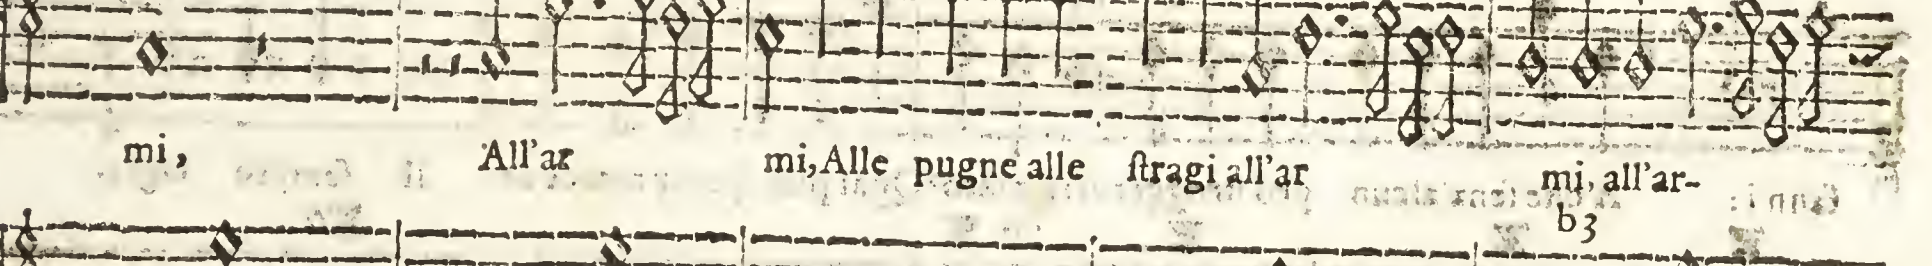 mi, All'ar mi, Alle pugne alle ſtragi all'ar mi, all'ar-
b3